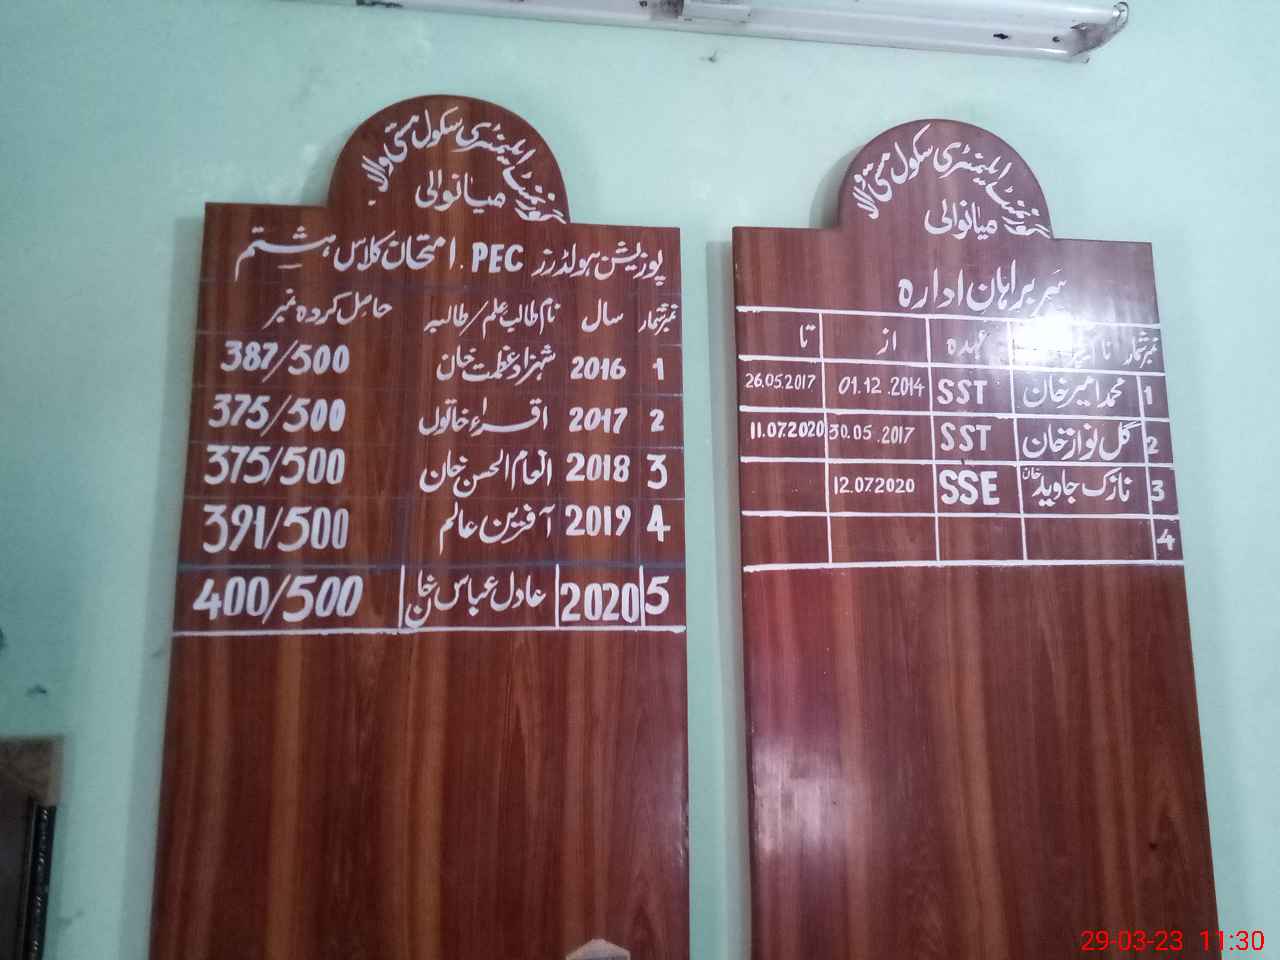 گورنمنٹ ایلیمنٹری سکول مستی والا
میانوالی
پوزیشن ہولڈرز PEC امتحان کلاس ہشتم
نمبر شمار سال نام طالب علم/طالبہ حاصل کردہ نمبر
1 2016 شہزاد عظمت خان 387/500
2 2017 اقراء خاتون 375/500
3 2018 انعام الحسن خان 375/500
4 2019 آفرین عالم 391/500
5 2020 عادل عباس خان 400/500
گورنمنٹ ایلیمنٹری سکول مستی والا
میانوالی
سربراہان ادارہ
نمبر شمار نام عہدہ از تا
1 محمد امیر خان SST 01.12.2014 26.05.2017
2 گل نواز خان SST 30.05.2017 11.07.2020
3 نازک جاوید خان SSE 12.07.2020
4
29-03-23 11:30